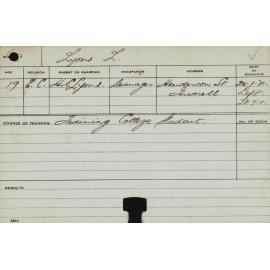 Lyons L.
AGE RELIGION PARENT OR GUARDIAN OCCUPATION ADDRESS DATE OF ENTRANCE
19 C.C. H.C. Lyons. Manager Henderson St. 24·1·11.
Inverell Left.
COURSE OF TRAINING Training College Student. No. OF ROOM
RESULTS